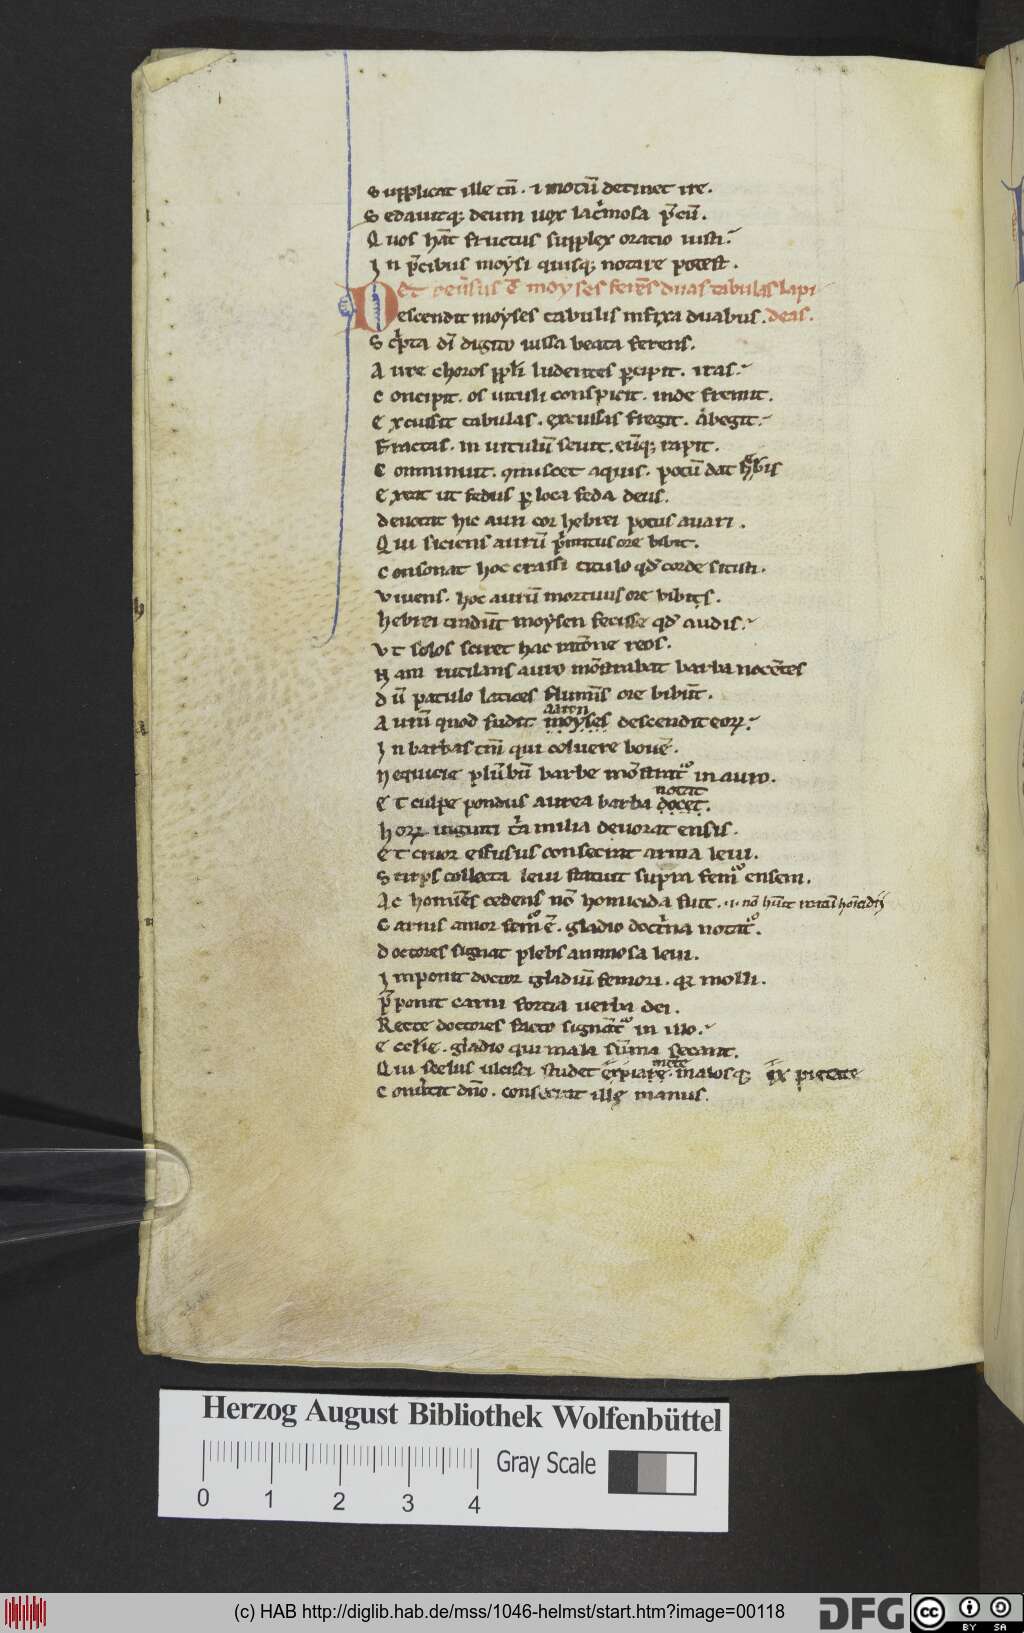 Supplicat ille tn̄ · ⁊ motū detinet ire.
Sedauitq; deum uox lac̄mosa p̄cū.
Quos hn̄t fructus supplex oratio iusti.
In p̄cibus moysi quisq; notare potest.
moyses ferēs duas tabulas lapi
Descendit moyses tabulis infixa duabus. deas.
Sc̄pta dī digito iussa beata ferens.
Aure choros ppl̄i ludentes p̄cipit. iras.
Concipit. os uituli conspicit. inde fremit.
Excussit tabulas. excussas fregit. abegit.
Fractas. in uitulū seuit. eūq; rapit.
Comminuit. miscet aquis. potū dat
Exeat ut fedus p loca feda deus.
denotat hic auri cor hebrei potus auari.
Qui siciens aurū p̄mitus ore bibit.
Consonat hoc crassi titulo qd̄ corde sitisti.
Viuens. hoc aurū mortuus ore bibis.
hebrei tradūt moysen fecisse qd̄ audis.
Vt solos sciret hac rōne reos.
Nam rutilans auro mōstrabat barba nocētes
dū patulo latices flumīs ore bibūt.
aaron
Aurū quod fudit moyses descendit eoꝝ.
In barbas tm̄ qui coluere bouē.
Nequicie plūbū barbe mōstrat᷑ in auro.
notat
Et culpe pondus aurea barba docet.
hoꝝ uiginti t̄a milia deuorat ensis.
Et cruor effusus consecrat arma leui.
Stirps collecta leui statuit supra femᷣ ensem.
Ac homīes cedens nō homicida fuit. .i. nō hūit reatū homicidij
Carnis amor femᷣ ē. gladio doct̄na notat᷑.
doctores signat plebs animosa leui.
Imponit doctor gladiū femori. q; molli.
p̄ponit carni fortia uerba dei.
Recte doctores facto signāt᷑ in illo.
Ecclīe. gladio qui mala sūma secant.
Qui scelus ulcisci studet expiare. malosq; ex pietate
Conūtit dn̄o. consecrat ille manus.
Herzog August Bibliothek Wolfenbüttel
Gray Scale
0 1 2 3 4
(c) HAB http://diglib.hab.de/mss/1046-helmst/start.htm?image=00118
DFG cc BY SA